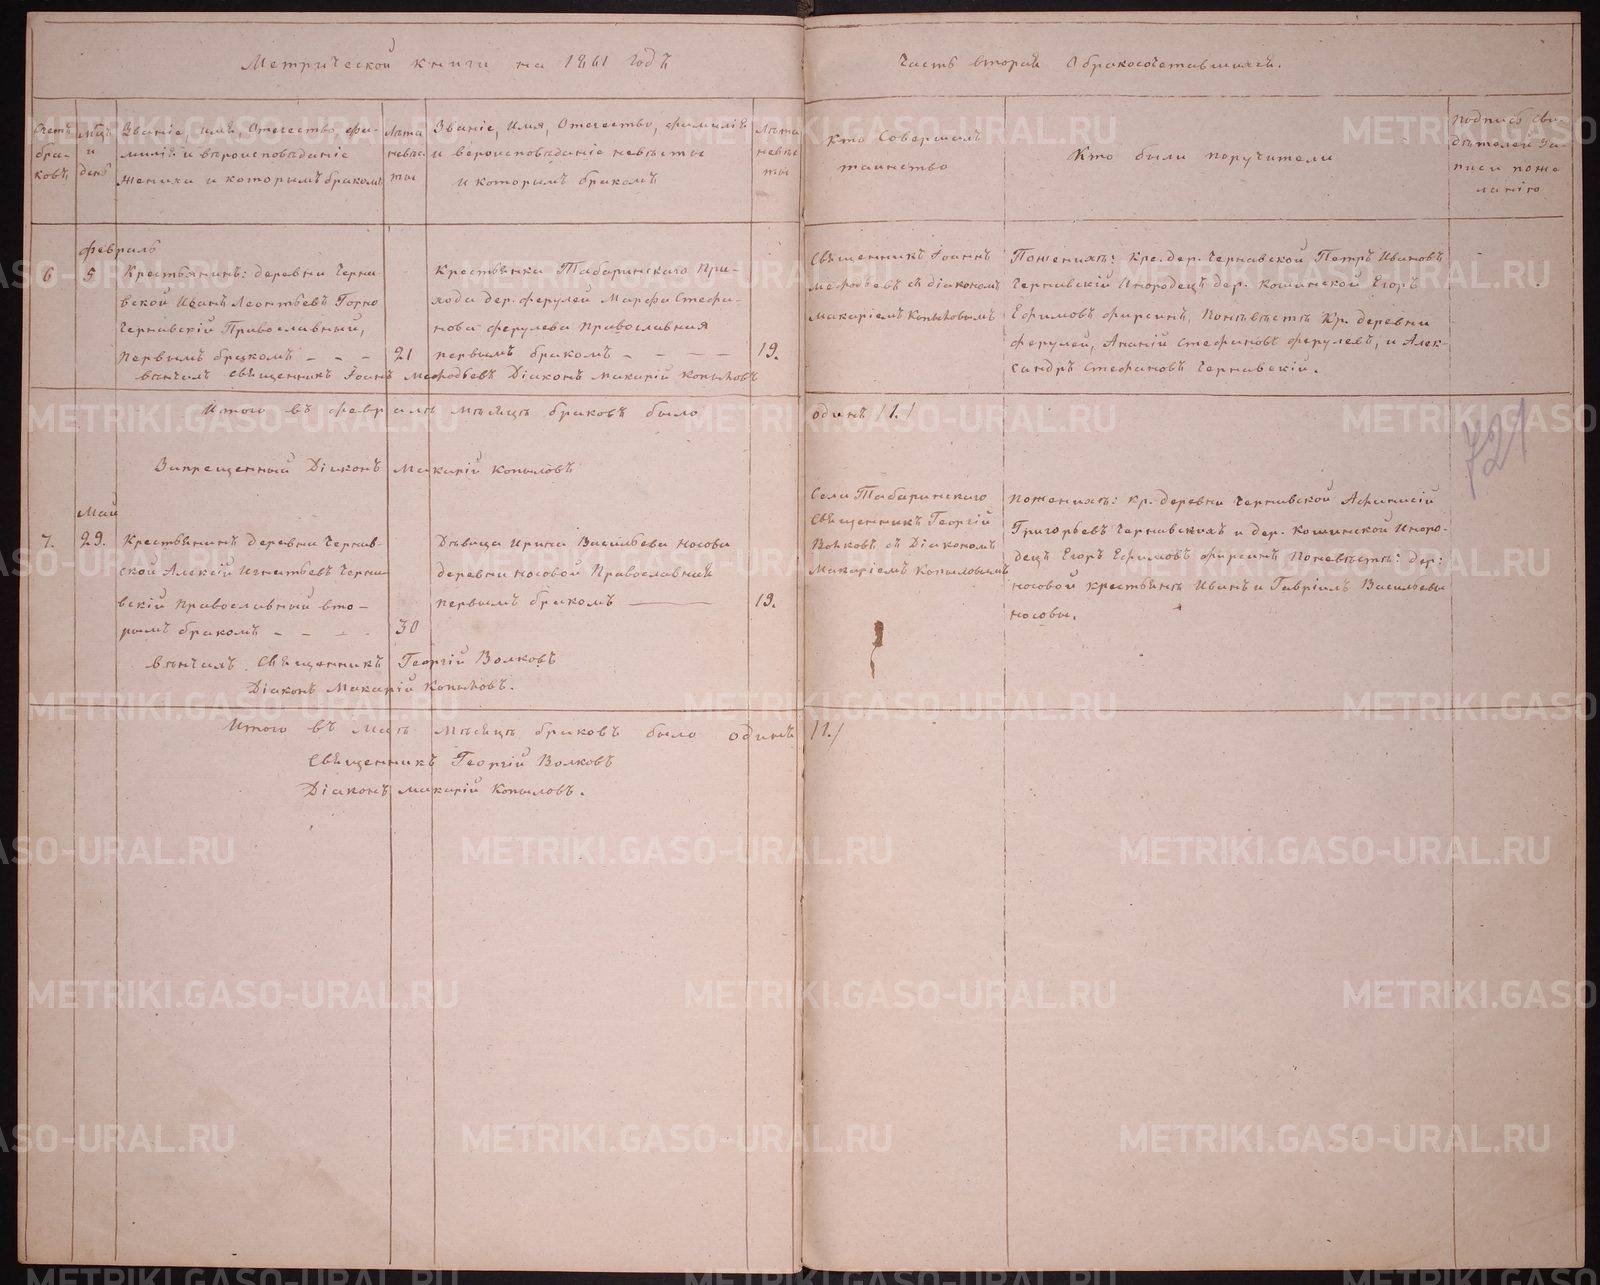 Метрической книги на 1861 годъ
Часть вторая О бракосочетавшихся.
Счетъ бра- ковъ
Мцъ и день
Званіе, имя, Отечество, фа-
милія и вѣроисповѣданіе
жениха и которымъ бракомъ
Лѣта
невѣс
ты
Званіе, Имя, Отечество, фамилія
и вероисповѣданіе невѣсты
и которымъ бракомъ
Лѣта
невѣс
ты
Кто Совершалъ
таинство
Кто были поручители
подпись Сви-
дѣтелей За-
писи поже
ланію
февраль
6
5
Крестьянинъ: деревни Черна-
вской Иванъ Леонтьевъ Горно
Чернавскій Православный,
первымъ бракомъ - - -
21
Крестьянка Табаринскаго При-
хода дер. ферулей Марфа Стефа-
нова ферулева православная
первымъ бракомъ - - - -
19.
вѣнчалъ священникъ Іоанъ Мефодьевъ Діаконъ Макарій Копыловъ
Священникъ Іоаннъ
Мефодьевъ съ діакономъ
Макаріемъ Копыловымъ
Поженихѣ: Кре. дер. Чернавской Петръ Ивановъ
Чернавскій Инородецъ дер. Кошинской Егоръ
Ефимовъ фирсинъ, Поневѣстѣ Кр. деревни
ферулей, Ананій Стефановъ ферулевъ, и Алек-
сандръ Стефановъ Чернавскій.
Итого въ февралѣ мѣсяцѣ браковъ было
одинъ /1./
721
Запрещенный Діаконъ Макарій Копыловъ
Май
7.
29.
Крестьянинъ деревни Чернав-
ской Алексій Игнатьевъ Черна-
вскій православный вто-
рымъ бракомъ - - - -
30
Дѣвица Ирина Васильева Носова
деревни Носовой Православная
первымъ бракомъ
19.
вѣнчалъ Священникъ Георгій Волковъ
Діаконъ Макарій Копыловъ.
Села Табаринскаго
Священникъ Георгій
Волковъ съ Діакономъ
Макаріемъ Копыловымъ
поженихѣ: кр. деревни Чернавской Афанасій
Григорьевъ Чернавскихъ и дер. Кошинской Иноро-
децъ Егоръ Ефимовъ фирсинъ Поневѣстѣ: дер:
Носовой крестьянъ Иванъ и Гавріилъ Васильевы
Носовы.
Итого въ Маѣ мѣсяцѣ браковъ было одинъ /1./
Священникъ Георгій Волковъ
Діаконъ Макарій Копыловъ.
METRIKI.GASO-URAL.RU